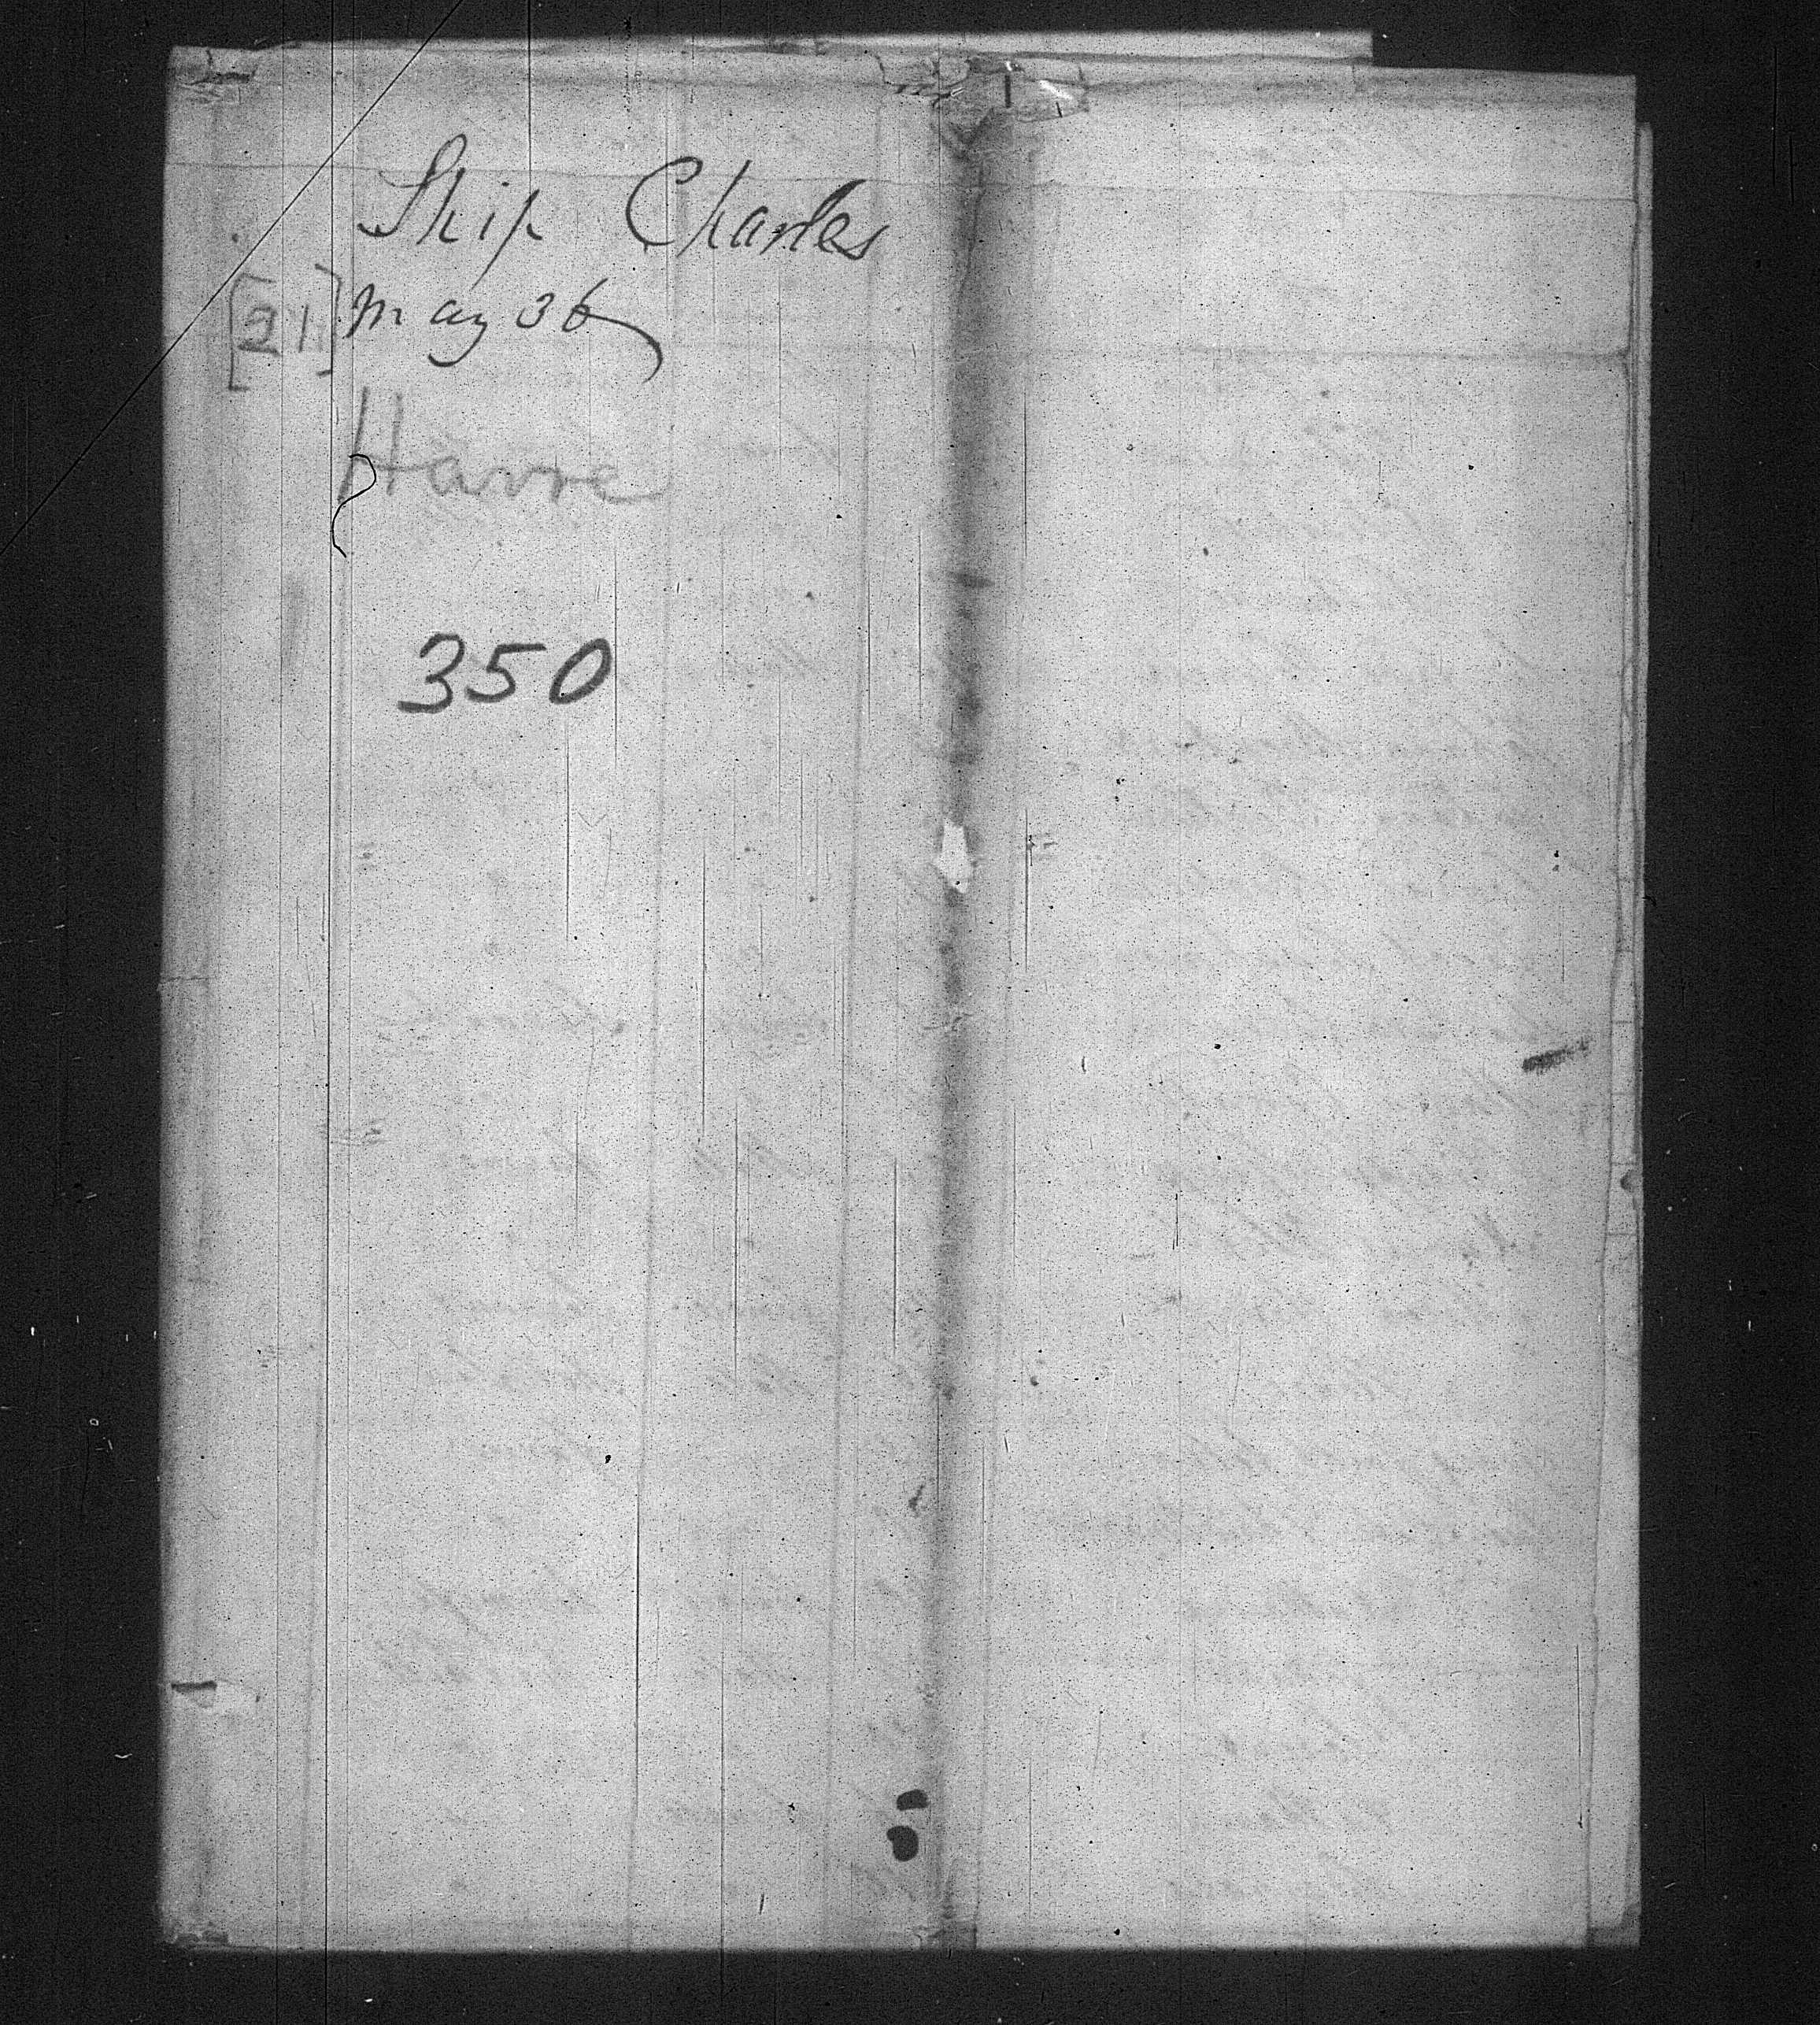 Ship Charles
[21] May 36
Havre
350